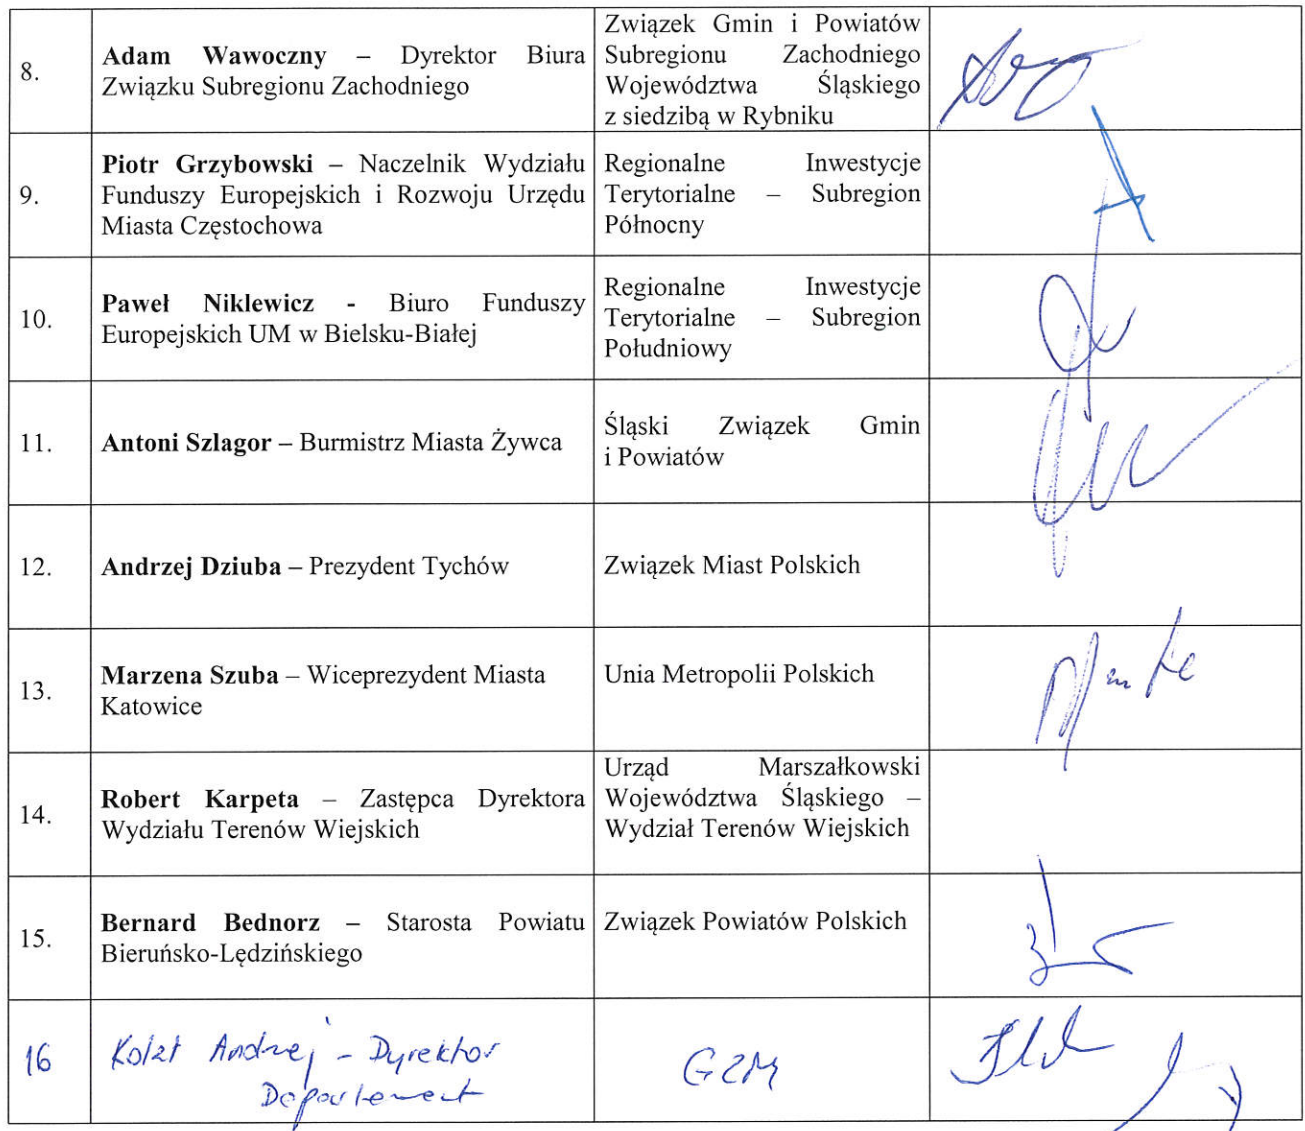 8.
Adam Wawoczny – Dyrektor Biura
Związku Subregionu Zachodniego
Związek Gmin i Powiatów
Subregionu Zachodniego
Województwa Śląskiego
z siedzibą w Rybniku
9.
Piotr Grzybowski – Naczelnik Wydziału
Funduszy Europejskich i Rozwoju Urzędu
Miasta Częstochowa
Regionalne Inwestycje
Terytorialne – Subregion
Północny
10.
Paweł Niklewicz - Biuro Funduszy
Europejskich UM w Bielsku-Białej
Regionalne Inwestycje
Terytorialne – Subregion
Południowy
11.
Antoni Szlagor – Burmistrz Miasta Żywca
Śląski Związek Gmin
i Powiatów
12.
Andrzej Dziuba – Prezydent Tychów
Związek Miast Polskich
13.
Marzena Szuba – Wiceprezydent Miasta
Katowice
Unia Metropolii Polskich
14.
Robert Karpeta – Zastępca Dyrektora
Wydziału Terenów Wiejskich
Urząd Marszałkowski
Województwa Śląskiego –
Wydział Terenów Wiejskich
15.
Bernard Bednorz – Starosta Powiatu
Bieruńsko-Lędzińskiego
Związek Powiatów Polskich
16
Andrzej – Dyrektor
GZM